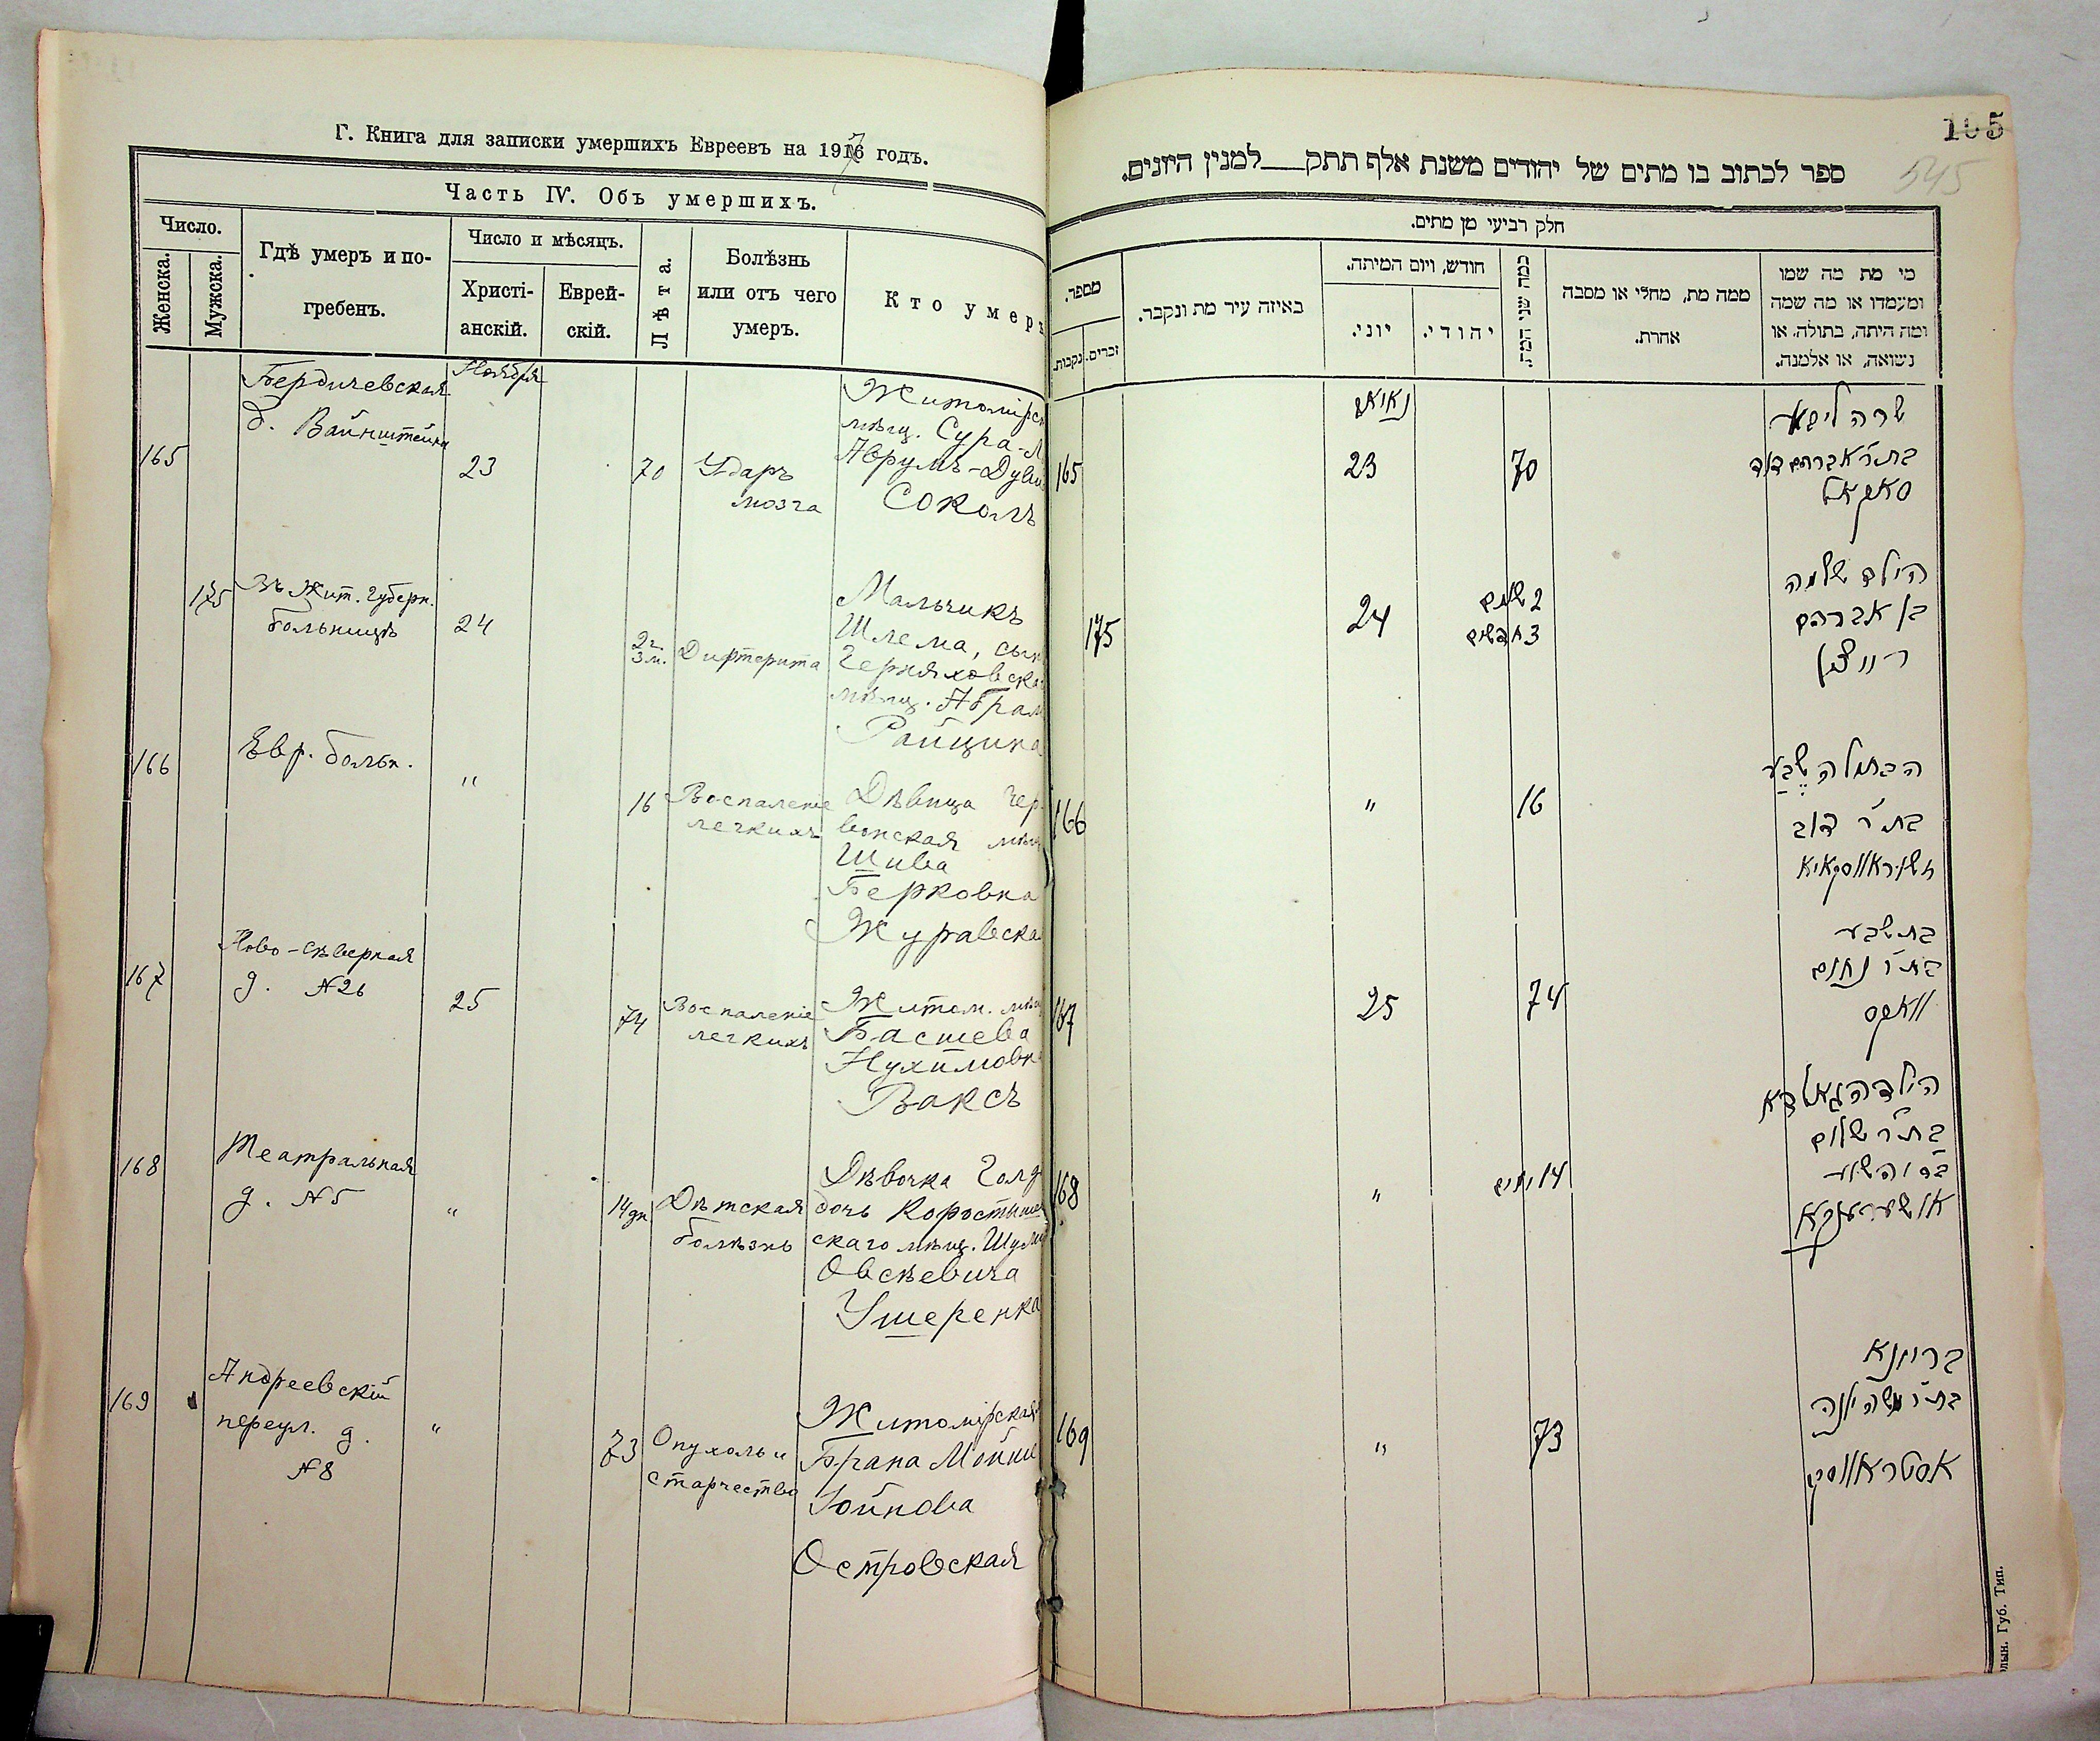 Г. Книга для записки умершихъ Евреевъ на 1917 годъ.
Часть IV. Объ умершихъ.
Число.
Женска.
Мужска.
Гдѣ умеръ и по-
гребенъ.
Число и мѣсяцъ.
Христі-
анскій.
Еврей-
скій.
Лѣта.
Болѣзнь
или отъ чего
умеръ.
Кто умеръ
165
Бердичевская
д. Вайнштейна
Ноября
23
70
Ударъ
мозга
Житомірск
мѣщ. Сура-Л
Аврумъ-Дуви
Соколъ
175
Въ Жит. губерн.
больницѣ
24
2 г.
3 м.
Дифтерита
Мальчикъ
Шлема, сын
Черняховска
мѣщ. Абрам
Райцина
166
Евр. больн.
"
16
Воспаленіе
легкихъ
Дѣвица Чер-
вонская мѣщ
Шива
Берковна
Журавска
167
Ново-Сѣверная
д. №26
25
74
Воспаленіе
легкихъ
Житом. мѣщ
Басшева
Нухимовн
Ваксъ
168
Театральная
д. №5
"
14 дн
Дѣтская
болѣзнь
Дѣвочка Голд
дочь Коростыше
скаго мѣщ. Шулим
Овсѣевича
Ушеренка
169
Андреевскій
переул. д.
№8
"
73
Опухоль и
старчество
Житомірская
Брана Мойше
Іойнова
Островская
105
545
ספר לכתוב בו מתים של יהודים משנת אלף תתק___למנין היונים.
חלק רביעי מן מתים.
מספר.
נקבות.
זכרים.
באיזה עיר מת ונקבר.
חודש, ויום המיתה.
יוני.
יהודי.
כמה שני המת.
ממה מת, מחלי או מסבה
אחרת.
מי מת מה שמו
ומעמדו או מה שמה
ומה היתה, בתולה, או
נשואה, או אלמנה.
165
נאיאב
23
70
שרה ליבא
בת ר' אברהם דוד
סאקאל
175
24
2 שנים
3 חדשים
הילד שלמה
בן אברהם
רייצין
166
"
16
הבתולה שבע
בת ר' דוב
זשוראווסקאיא
167
25
74
בת שבע
בת ר' נחום
וואקס
168
"
14 ימים
הילדה גאלדא
בת ר' שלום
ב"ר יהושע
אושערענקא
169
"
73
בריינא
בת ר' משה יונה
אסטראווסקי
лын. Губ. Тип.